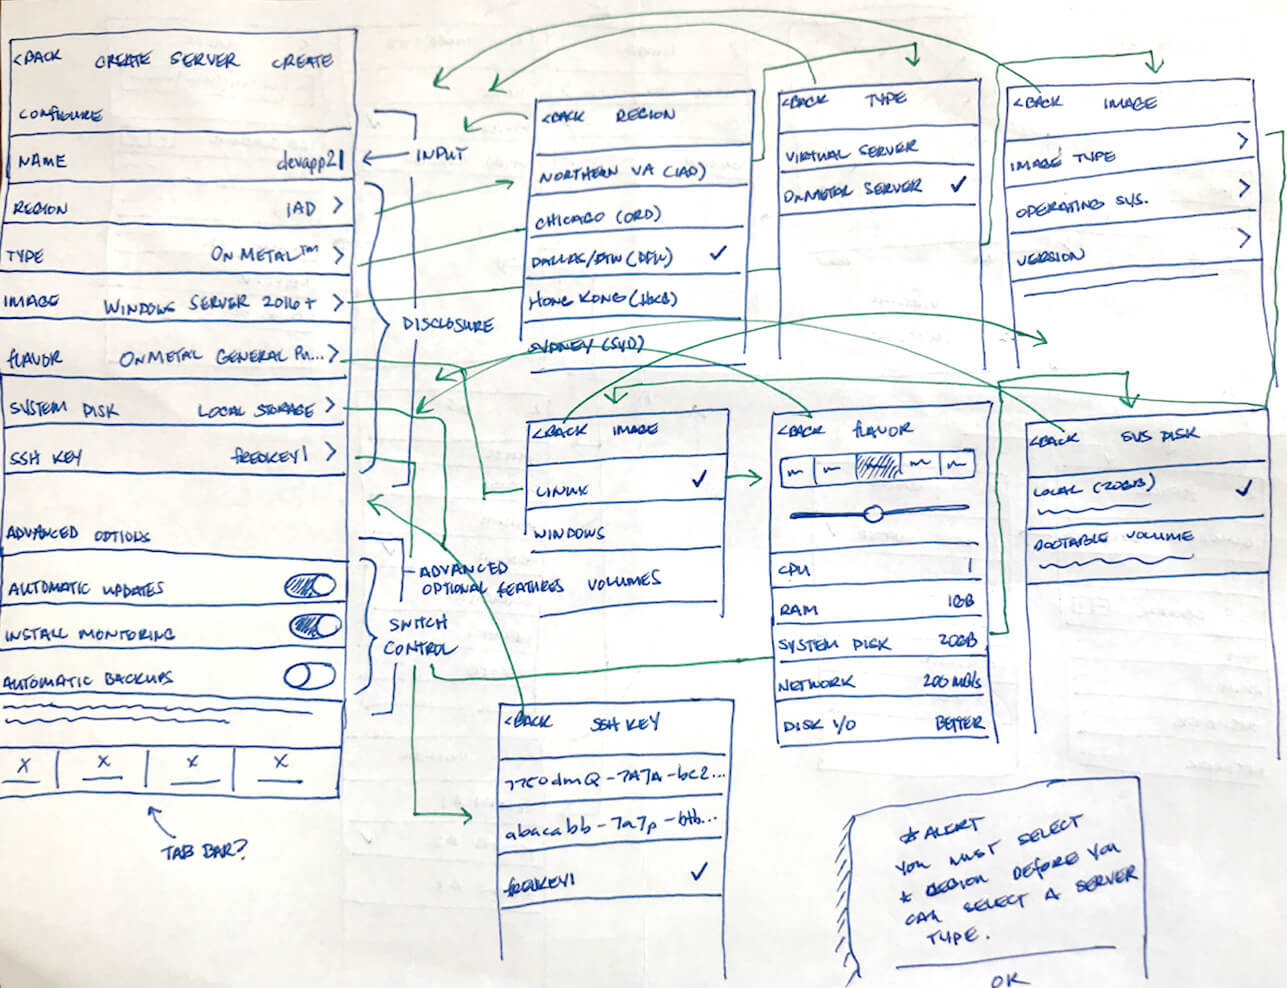 <BACK CREATE SERVER CREATE
CONFIGURE
NAME devapp21
REGION IAD >
TYPE ONMETAL™ >
IMAGE WINDOWS SERVER 2016+ >
FLAVOR ONMETAL GENERAL PU... >
SYSTEM DISK LOCAL STORAGE >
SSH KEY FREDKEY1 >
ADVANCED OPTIONS
AUTOMATIC UPDATES
INSTALL MONTORING
AUTOMATIC BACKUPS
X X X X
TAB BAR?
INPUT
DISCLOSURE
ADVANCED
OPTIONAL FEATURES
SWITCH
CONTROL
<BACK REGION
NORTHERN VA (IAD)
CHICAGO (ORD)
DALLAS/DFW (DFW) ✓
HONG KONG (HKG)
SYDNEY (SYD)
<BACK TYPE
VIRTUAL SERVER
ONMETAL SERVER ✓
<BACK IMAGE
IMAGE TYPE >
OPERATING SYS. >
VERSION >
<BACK IMAGE
LINUX ✓
WINDOWS
VOLUMES
<BACK FLAVOR
CPU 1
RAM 1GB
SYSTEM DISK 20GB
NETWORK 200 MB/s
DISK I/O BETTER
<BACK SYS DISK
LOCAL (20GB) ✓
BOOTABLE VOLUME
<BACK SSH KEY
abacabb-7a7p-btb...
FREDKEY1 ✓
* ALERT
YOU MUST SELECT
A REGION BEFORE YOU
CAN SELECT A SERVER
TYPE.
OK